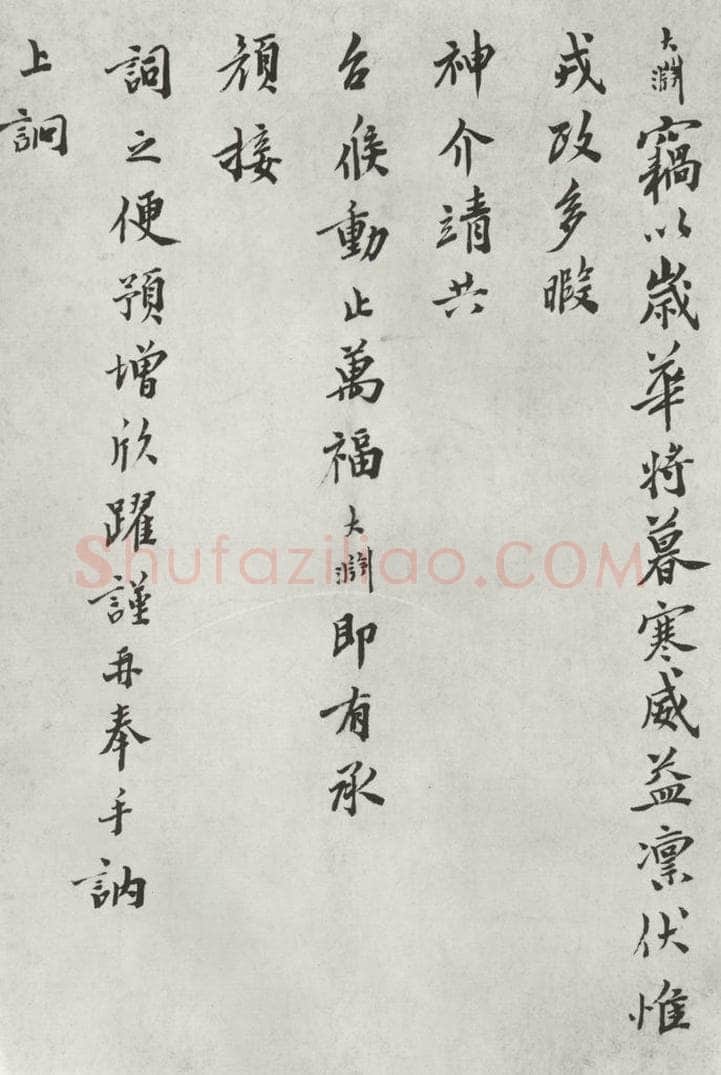 大淵竊以歲華將暮寒威益凛伏惟
戎政多暇
神介靖共
台候動止萬福大淵即有承
顏接
詞之便預增欣躍謹再奉手訥
上詗
Shufaziliao.COM